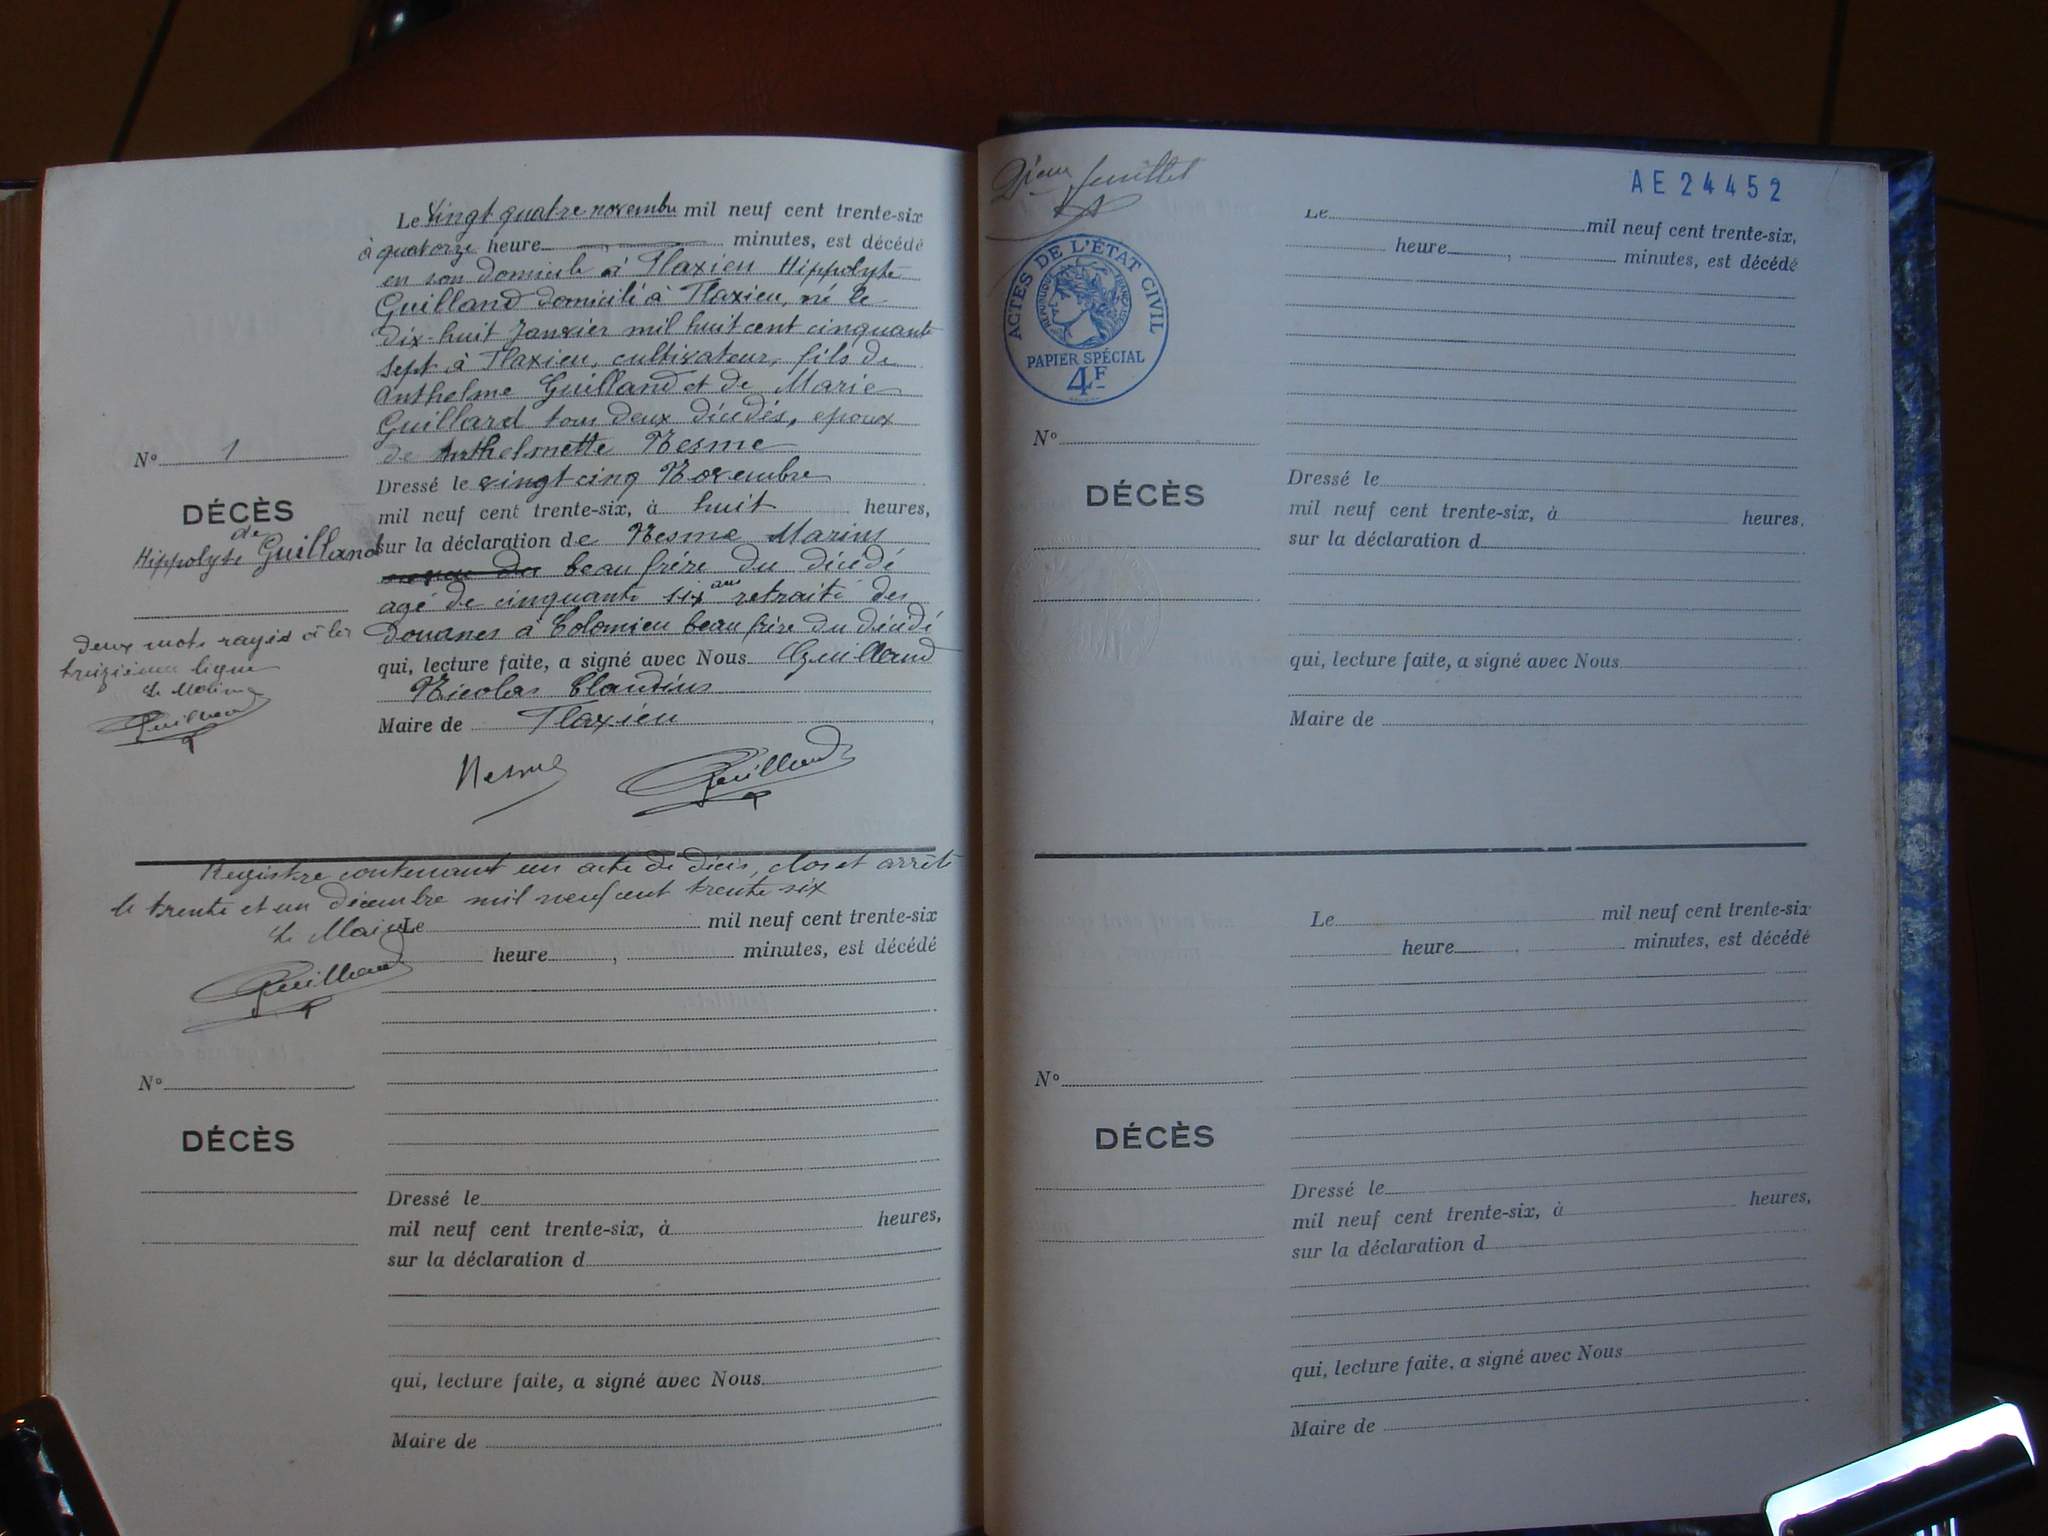 Le Vingt quatre novembre mil neuf cent trente-six
à quatorze heure , minutes, est décédé
en son domicile à Flaxieu Hippolyte
Guilland domicilié à Flaxieu, né le
dix-huit Janvier mil huit cent cinquante
sept à Flaxieu, cultivateur, fils de
Anthelme Guilland et de Marie
Guillard tous deux décédés, epoux
de Anthelmette Nesme
Nº 1
DÉCÈS
de
Hippolyte Guilland
Dressé le vingt cinq Novembre
mil neuf cent trente-six, à huit heures,
sur la déclaration de Nesme Marius
beau frère du décédé
agé de cinquante six ans retraité des
Douanes à Colomieu beau frère du décédé
qui, lecture faite, a signé avec Nous Guilland
Nicolas Claudius
Maire de Flaxieu
Deux mots rayés à la
treizième ligne
Le
Guilland
Nesme Guilland
Registre contenant un acte de décès, clos et arrêté
le trente et un décembre mil neuf cent trente six
Le Maire
Guilland
Le mil neuf cent trente-six
heure , minutes, est décédé
Nº
DÉCÈS
Dressé le
mil neuf cent trente-six, à heures,
sur la déclaration d
qui, lecture faite, a signé avec Nous
Maire de
2ième feuillet
AE 24452
ACTES DE L'ÉTAT CIVIL
RÉPUBLIQUE FRANÇAISE
PAPIER SPÉCIAL
4F
Le mil neuf cent trente-six,
heure , minutes, est décédé
Nº
DÉCÈS
Dressé le
mil neuf cent trente-six, à heures.
sur la déclaration d
qui, lecture faite, a signé avec Nous
Maire de
Le mil neuf cent trente-six
heure , minutes, est décédé
Nº
DÉCÈS
Dressé le
mil neuf cent trente-six, à heures,
sur la déclaration d
qui, lecture faite, a signé avec Nous
Maire de